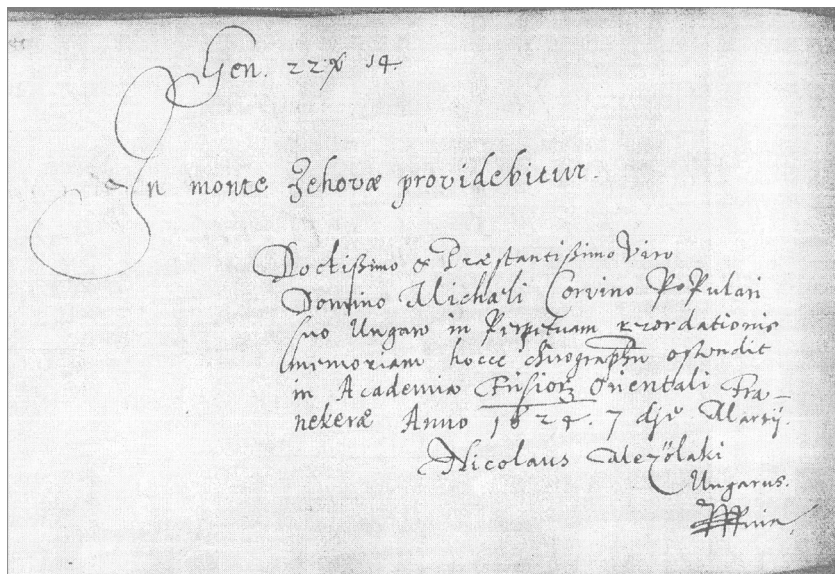 Gen. 22 ℣ 14.
In monte Jehovæ providebitur.
Doctißimo & Præstantißimo Viro
Domino Michæli Corvino PoPulari
suo Ungaro in Perpetuam recordationis
memoriam hocce chirographū ostendit
in Academia Frisior Orientali Fra-
nekeræ Anno 1624. 7 die Martij.
Nicolaus Mezölaki
Ungarus.